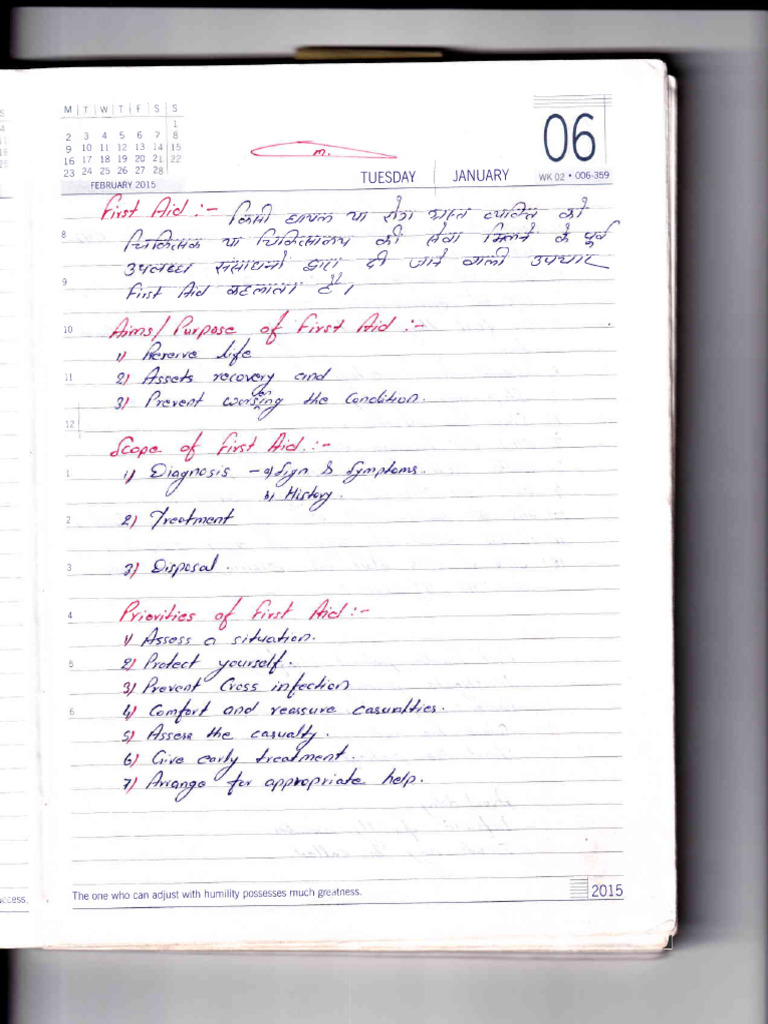 M T W T F S S
1
2 3 4 5 6 7 8
9 10 11 12 13 14 15
16 17 18 19 20 21 22
23 24 25 26 27 28
FEBRUARY 2015
m.
TUESDAY JANUARY
06
WK 02 • 006-359
First Aid :- किसी घायल या रोग ग्रस्त व्यक्ति को
8 चिकित्सक या चिकित्सालय की सेवा मिलने के पूर्व
उपलब्ध संसाधनो द्वारा दी जाने वाली उपचार
9 First Aid कहलाता है।
10 Aims/Purpose of First Aid :-
1) Preserve life
11 2) Assets recovery and
3) Prevent the Condition.
12
Scope of First Aid :-
1 1) Diagnosis - a) Sign & Symptoms.
b) History.
2 2) Treatment
3 3) Disposal.
4 Priorities of First Aid :-
1) Assess a situation.
5 2) Protect yourself.
3) Prevent Cross infection
6 4) Comfort and reassure casualties.
5) Assess the casualty.
6) Give early treatment.
7) Arrange for appropriate help.
The one who can adjust with humility possesses much greatness.
2015